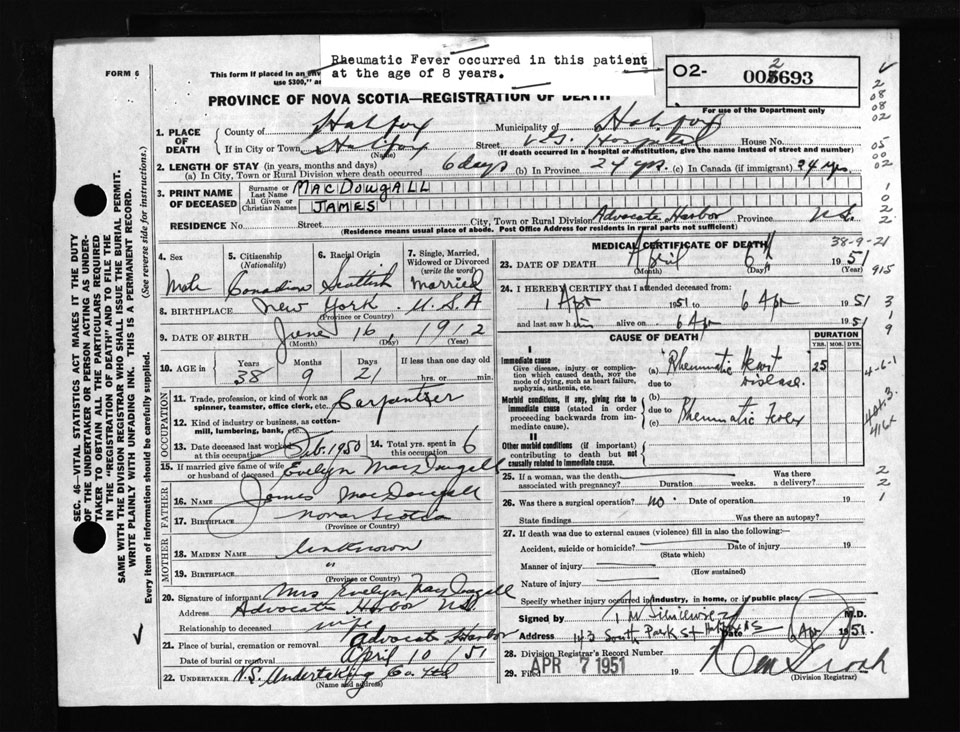 Rheumatic Fever occurred in this patient
at the age of 8 years.
FORM 6
This form if placed in an env
use $300," as
02-
2
005693
PROVINCE OF NOVA SCOTIA—REGISTRATION OF DEATH
For use of the Department only
1. PLACE OF DEATH
County of Halifax Municipality of Halifax
If in City or Town Halifax (Name) Street V.G. Hospital House No.
(If death occurred in a hospital or institution, give the name instead of street and number)
2. LENGTH OF STAY (in years, months and days)
(a) In City, Town or Rural Division where death occurred 6 days (b) In Province 24 yrs. (c) In Canada (if immigrant) 34 yrs
3. PRINT NAME OF DECEASED
Surname or Last Name MACDOUGALL
All Given or Christian Names JAMES
RESIDENCE No. Street City, Town or Rural Division Advocate Harbor Province N.S.
(Residence means usual place of abode. Post Office Address for residents in rural parts not sufficient)
4. Sex Male
5. Citizenship (Nationality) Canadian
6. Racial Origin Scottish
7. Single, Married, Widowed or Divorced (write the word) Married
8. BIRTHPLACE New York U.S.A
(Province or Country)
9. DATE OF BIRTH June 16, 1912
(Month) (Day) (Year)
10. AGE in Years 38 Months 9 Days 21 If less than one day old
hrs. or min.
OCCUPATION
11. Trade, profession, or kind of work as spinner, teamster, office clerk, etc. Carpenter
12. Kind of industry or business, as cotton-mill, lumbering, bank, etc.
13. Date deceased last worked at this occupation Feb. 1950
14. Total yrs. spent in this occupation 6
15. If married give name of wife or husband of deceased Evelyn MacDougall
FATHER
16. NAME James MacDougall
17. BIRTHPLACE Nova Scotia
(Province or Country)
MOTHER
18. MAIDEN NAME Unknown
19. BIRTHPLACE "
(Province or Country)
20. Signature of informant Mrs Evelyn MacDougall
Address Advocate Harbor N.S.
Relationship to deceased wife
21. Place of burial, cremation or removal Advocate Harbor
Date of burial or removal April 10 / 51
22. UNDERTAKER N.S. Undertaking Co. Ltd
(Name and address)
MEDICAL CERTIFICATE OF DEATH
38-9-21
23. DATE OF DEATH April 6th 1951
(Month) (Day) (Year)
24. I HEREBY CERTIFY that I attended deceased from:
1 Apr 1951 to 6 Apr 1951
and last saw him alive on 6 Apr 1951
CAUSE OF DEATH
DURATION
YRS. MOS. DYS.
I
Immediate cause
Give disease, injury or complication which caused death, not the mode of dying, such as heart failure, asphyxia, asthenia, etc.
(a) Rheumatic Heart Disease. 25
due to
Morbid conditions, if any, giving rise to immediate cause (stated in order proceeding backwards from immediate cause).
(b)
due to
(c) Rheumatic Fever
II
Other morbid conditions (if important) contributing to death but not causally related to immediate cause.
25. If a woman, was the death associated with pregnancy? Duration weeks. Was there a delivery?
26. Was there a surgical operation? no. Date of operation 19
State findings Was there an autopsy?
27. If death was due to external causes (violence) fill in also the following:—
Accident, suicide or homicide? Date of injury 19
(State which)
Manner of injury
(How sustained)
Nature of injury
Specify whether injury occurred in industry, in home, or in public place
Signed by M.D.
Address 143 South Park St Halifax NS Date 6 Apr 1951.
28. Division Registrar's Record Number
29. Filed APR 7 1951 19
(Division Registrar)
SEC. 46—VITAL STATISTICS ACT MAKES IT THE DUTY
OF THE UNDERTAKER OR PERSON ACTING AS UNDER-
TAKER TO OBTAIN ALL THE PARTICULARS REQUIRED
IN THE "REGISTRATION OF DEATH" AND TO FILE THE
SAME WITH THE DIVISION REGISTRAR WHO SHALL ISSUE THE BURIAL PERMIT.
WRITE PLAINLY WITH UNFADING INK. THIS IS A PERMANENT RECORD.
Every item of information should be carefully supplied. (See reverse side for instructions.)
2
08
08
02
05
00
02
1
0
2
2
915
3
1
9
4-6-1
2
2
1